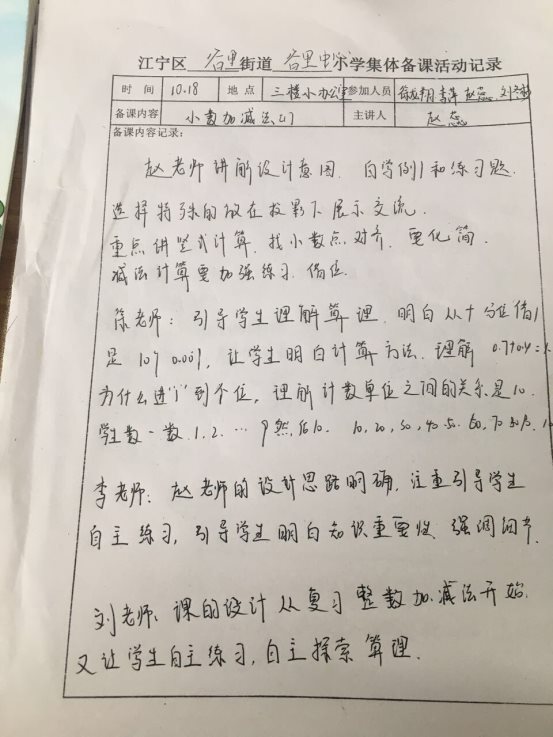 江宁区 谷里街道 谷里中心小学集体备课活动记录
时 间 10.18 地 点 三楼小办公室 参加人员 李萍 赵蕊
备课内容 小数加减法(1) 主讲人 赵蕊
备课内容记录:
赵老师讲解设计意图. 自学例1和练习题.
选择特殊的放在投影下展示交流.
重点讲竖式计算. 找小数点对齐. 要化简.
减法计算要加强练习. 借位.
老师: 引导学生理解算理. 明白从十分位借1
是10个0.01, 让学生明白计算方法. 理解
为什么进"1"到个位, 理解计数单位之间的关系是10.
学生数一数. 1. 2. … 9 然后10. 10, 20, 30, 40. 50. 60, 70
李老师: 赵老师的设计思路明确, 注重引导学生
自主练习, 引导学生明白知识重要性. 强调细节.
刘老师: 课的设计从复习整数加减法开始.
又让学生自主练习, 自主探索算理.